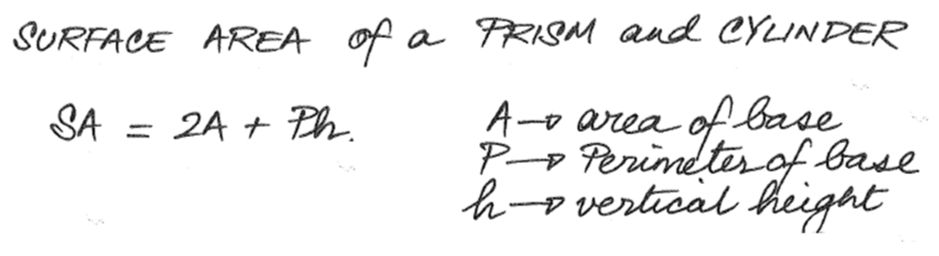 SURFACE AREA of a PRISM and CYLINDER
SA = 2A + Ph.
A → area of base
P → Perimeter of base
h → vertical height